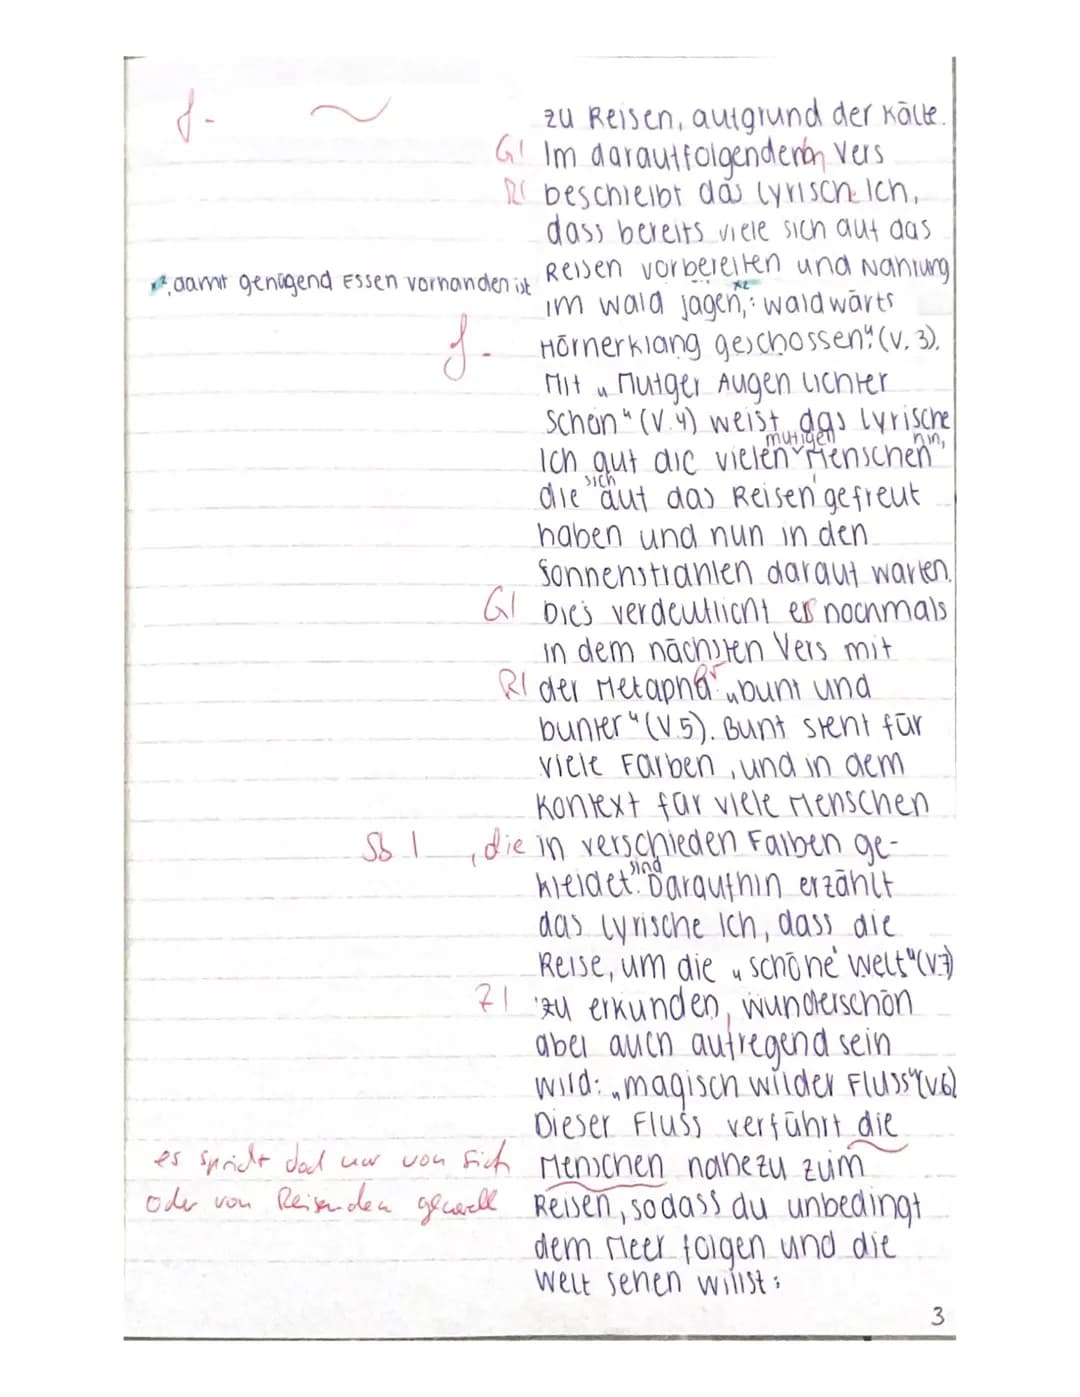 f- ~
zu Reisen, aufgrund der Kälte.
G! Im darauffolgenden Vers
R! beschreibt das lyrisch Ich,
dass bereits viele sich auf das
x², damit genügend Essen vorhanden ist Reisen vorbereiten und Nahrung
im Wald jagen, x²: waldwärts
f- Hörnerklang geschossen" (V. 3).
Mit „Mutger Augen lichter
Schein" (V. 4) weist das lyrische
Ich auf die vielen mutigen Menschen hin,
die sich auf das Reisen gefreut
haben und nun in den
Sonnenstrahlen darauf warten.
G! Dies verdeutlicht es nochmals
in dem nächsten Vers mit
R! der Metapher „bunt und
bunter" (V. 5). Bunt steht für
viele Farben, und in dem
Kontext für viele Menschen
Sb ! , die in verschieden Farben ge-
kleidet sind. Daraufhin erzählt
das lyrische Ich, dass die
Reise, um die „schöne Welt" (V. 7)
Z! zu erkunden, wunderschön
aber auch aufregend sein
wird: „magisch wilder Fluss" (V. 6)
Dieser Fluss verführt die
es spricht doch nur von sich Menschen nahezu zum
oder von Reisenden generell Reisen, sodass du unbedingt
dem Meer folgen und die
Welt sehen willst:
3